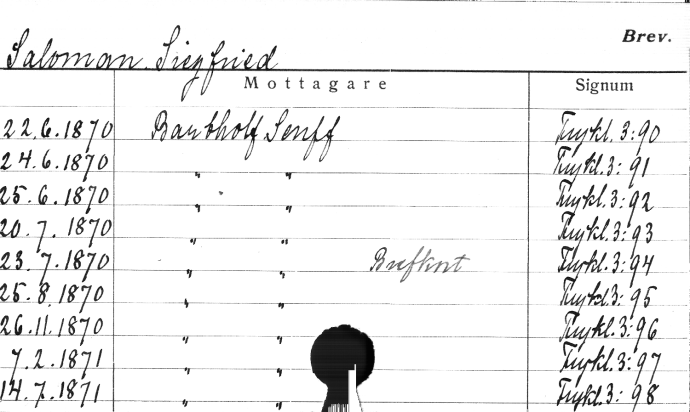 Brev.
Saloman Siegfried
Mottagare Signum
22.6.1870 Bartholf Senff Tryckl. 3:90
24.6.1870 " " Tryckl. 3:91
25.6.1870 " " Tryckl. 3:92
20.7.1870 " " Tryckl. 3:93
23.7.1870 " " Brefkort Tryckl. 3:94
25.8.1870 " " Tryckl. 3:95
26.11.1870 " " Tryckl. 3:96
7.2.1871 " " Tryckl. 3:97
14.7.1871 " " Tryckl. 3:98